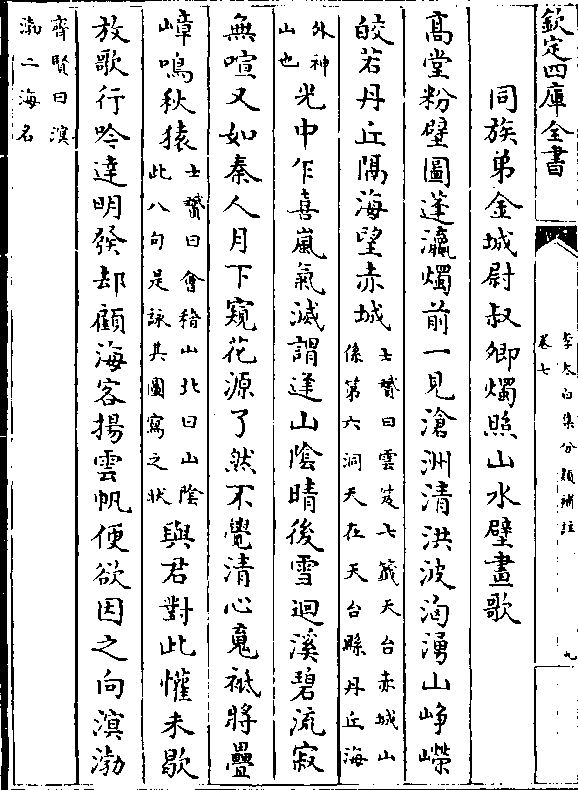 欽定四庫全書
李太白集分類補註
卷七
九
同族弟金城尉叔卿燭照山水壁畫歌
高堂粉壁圖蓬瀛燭前一見滄洲清洪波洶湧山崢嶸
皎若丹丘隔海望赤城
士贇曰雲笈七籤天台赤城山
係第六洞天在天台縣丹丘海
外神
山也
光中乍喜嵐氣滅謂逢山陰晴後雪迴溪碧流寂
無喧又如秦人月下窺花源了然不覺清心䰟祗將疊
嶂鳴秋猿
士贇曰會稽山北曰山陰
此八句是詠其圖寫之狀
與君對此懽未歇
放歌行吟達明發却顧海客揚雲帆便欲因之向溟渤
齊賢曰溟
渤二海名